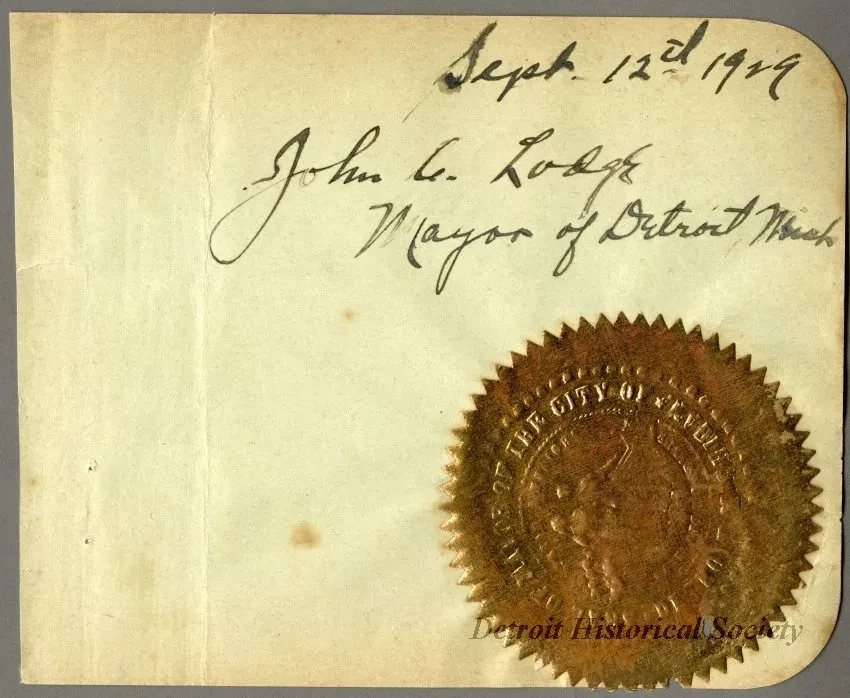 Sept. 12th 1929
John C. Lodge
Mayor of Detroit Mich
OF THE CITY OF
Detroit Historical Society